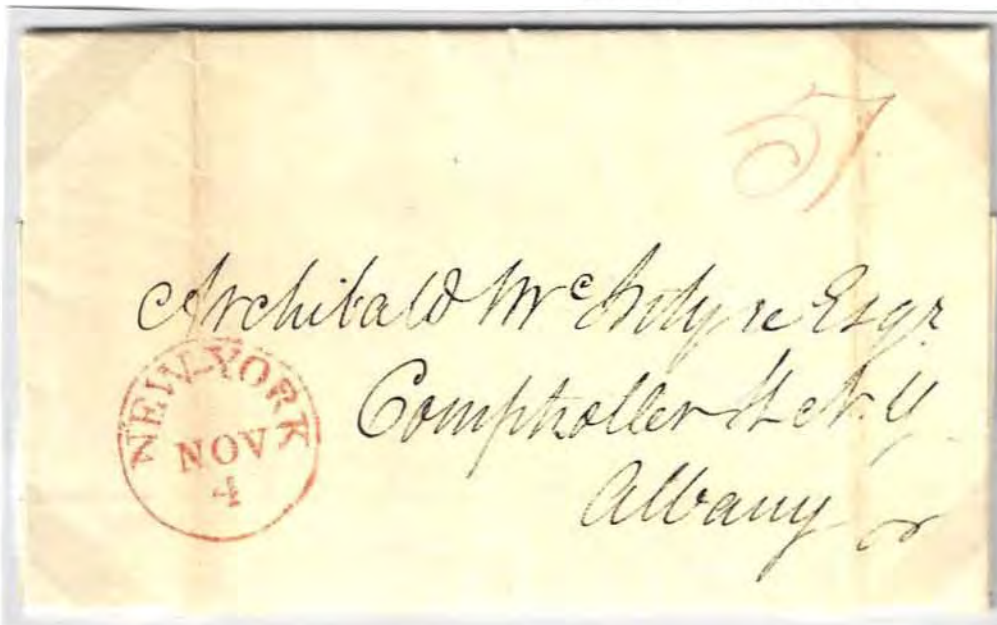 Archibald McIntyre Esqr
Comptroller St. N.Y
Albany
NEW-YORK
NOV
4